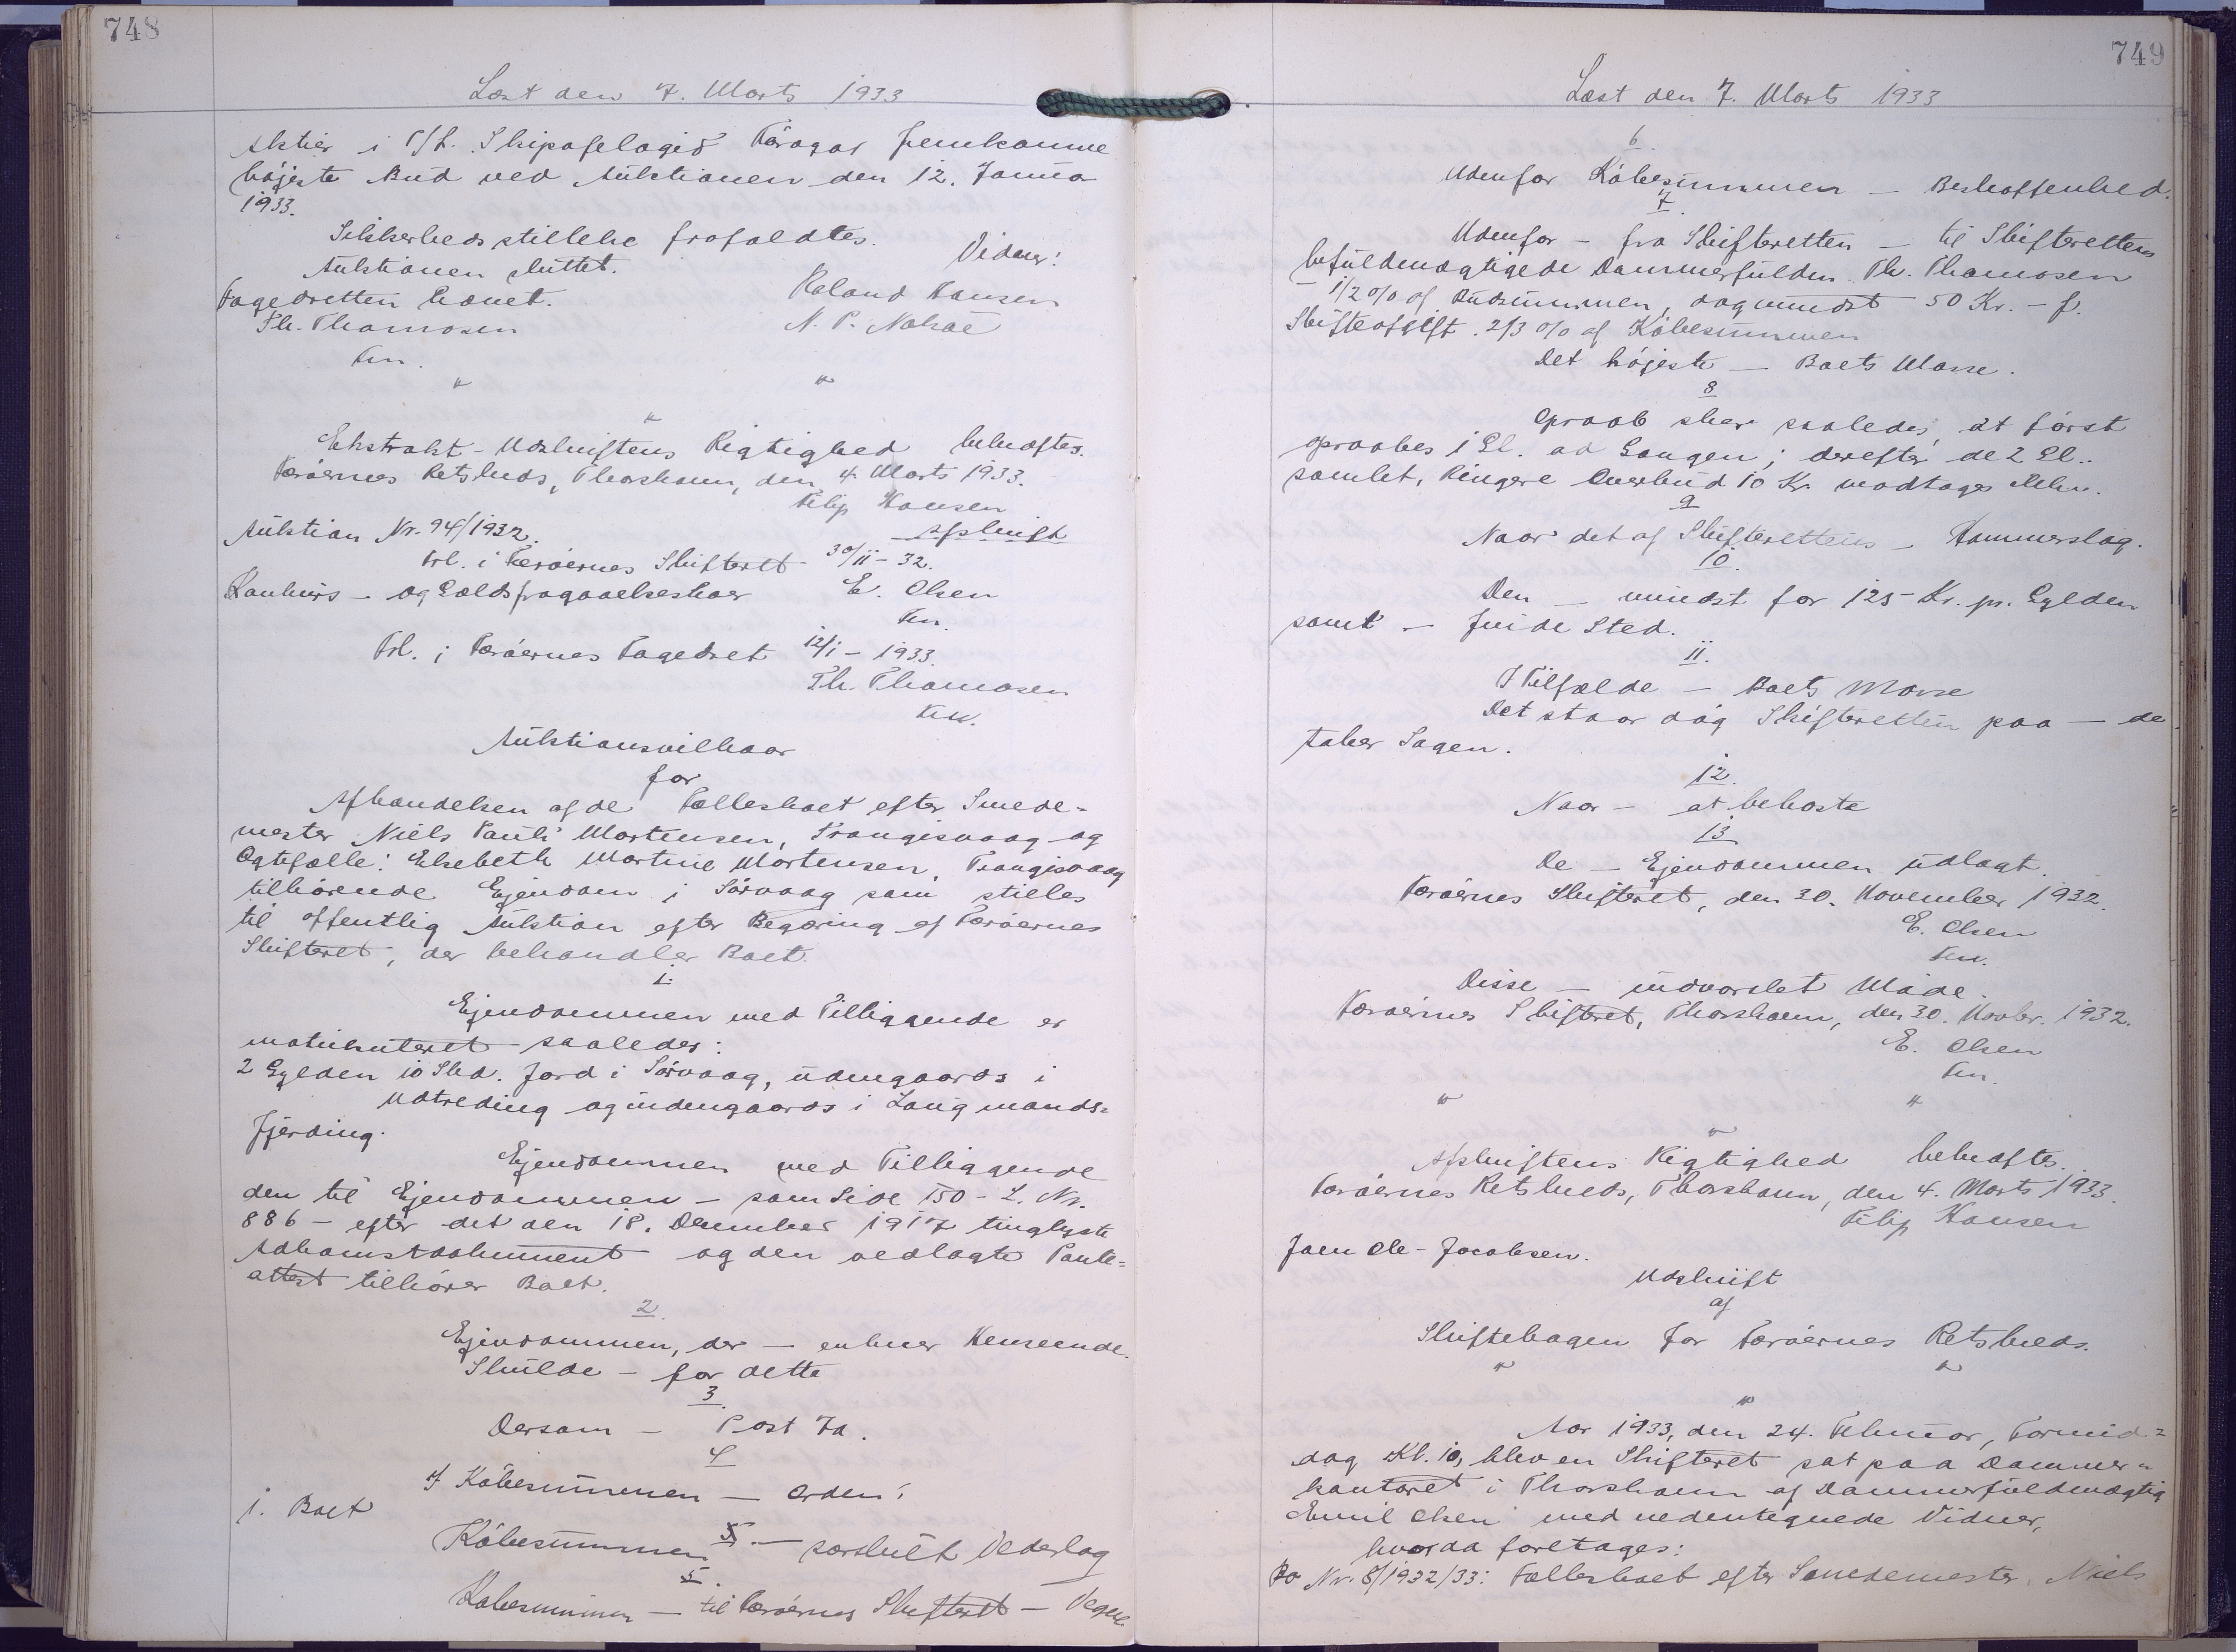 748
Læst den 7. Marts 1933
Aktier i P/f. Skipafelagið Føroyar fremkomne
højeste Bud ved Auktionen den 12. Januar
1933.
Sikkerhedsstillelse frafaldtes.
Auktionen sluttet.
Vidner:
Fogedretten hævet.
Roland Hansen
Th. Thomasen
N. P. Nolsøe
fm.
"
"
"
Ekstrakt-Udskriftens Rigtighed bekræftes.
Færøernes Retskreds, Thorshavn, den 4. Marts 1933.
Filip Hansen
Auktion Nr. 94/1932.
Afskrift
Frl. i Færøernes Skifteret 30/11-32.
Konkurs- og Gældsfragaaelsesboer
E. Olsen
fm.
Frl. i Færøernes Fogedret 12/1-1933.
Th. Thomasen
fm.
Auktionsvilkaar
for
Afhændelsen af de Fællesboet efter Smede-
mester Niels Pauli Mortensen, Trangisvaag og
Ægtefælle: Elsebeth Martine Mortensen, Trangisvaag
tilhørende Ejendom i Sørvaag som stilles
til offentlig Auktion efter Begæring af Færøernes
Skifteret, der behandler Boet.
1.
Ejendommen med Tilliggende er
matrikuleret saaledes:
2 Gylden 10 Skd. Jord i Sørvaag, udengaards i
Udtreding og indengaards i Laugmands-
fjerding.
Ejendommen med Tilliggende
den til Ejendommen - som Side 150 - L. Nr.
886 - efter det den 18. December 1917 tinglyste
Adkomstdokument og den vedlagte Pante-
attest tilhører Boet.
2.
Ejendommen, der - enhver Henseende.
Skulde - for dette
3.
Dersom - Post 7a.
4
I Købesummen - Orden:
1. Boet
Købesummen 5. - særskilt Vederlag
5.
Købesummen - til Færøernes Skifteret - Vegne
749
Læst den 7. Marts 1933
6.
Udenfor Købesummen - Beskaffenhed.
7.
Udenfor - fra Skifteretten - til Skifterettens
befuldmægtigede Dommerfuldm. Th. Thomasen
- 1/2 % af Budsummen, dog mindst 50 Kr. - f.
Skifteafgift. 2/3 % af Købesummen
Det højeste - Boets Masse.
8
Opraab sker saaledes, at først
opraabes 1 Gl. ad Gangen; derefter de 2 Gl..
samlet, Ringere Overbud 10 Kr modtages ikke.
9
Naar det af Skifterettens - Hammerslag.
10.
Den - mindst for 125 Kr. pr. Gylden
samt - finde Sted.
11.
I Tilfælde - Boets Masse
Det staar dog Skifteretten paa - de
taber Sagen.
12.
Naar - at bekoste
13
De - Ejendommen udlagt.
Færøernes Skifteret, den 30. November 1932.
E. Olsen
fm.
Disse - indvarslet Maade.
Færøernes Skifteret, Thorshavn, den 30. Novbr. 1932.
E. Olsen
fm.
"
"
"
Afskriftens Rigtighed bekræftes.
Færøernes Retskreds, Thorshavn, den 4. Marts 1933.
Filip Hansen
Joen Ole Jacobsen.
Udskrift
af
Skiftebogen for Færøernes Retskreds.
"
"
"
Aar 1933, den 24. Februar, Formid-
dag Kl. 10, blev en Skifteret sat paa Dommer-
kontoret i Thorshavn af Dommerfuldmægtig
Emil Olsen med nedentegnede Vidner,
hvorda foretages:
Bo Nr. 8/1932/33: Fællesboet efter Smedemester Niels